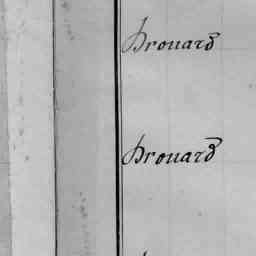 Drouard
Drouard